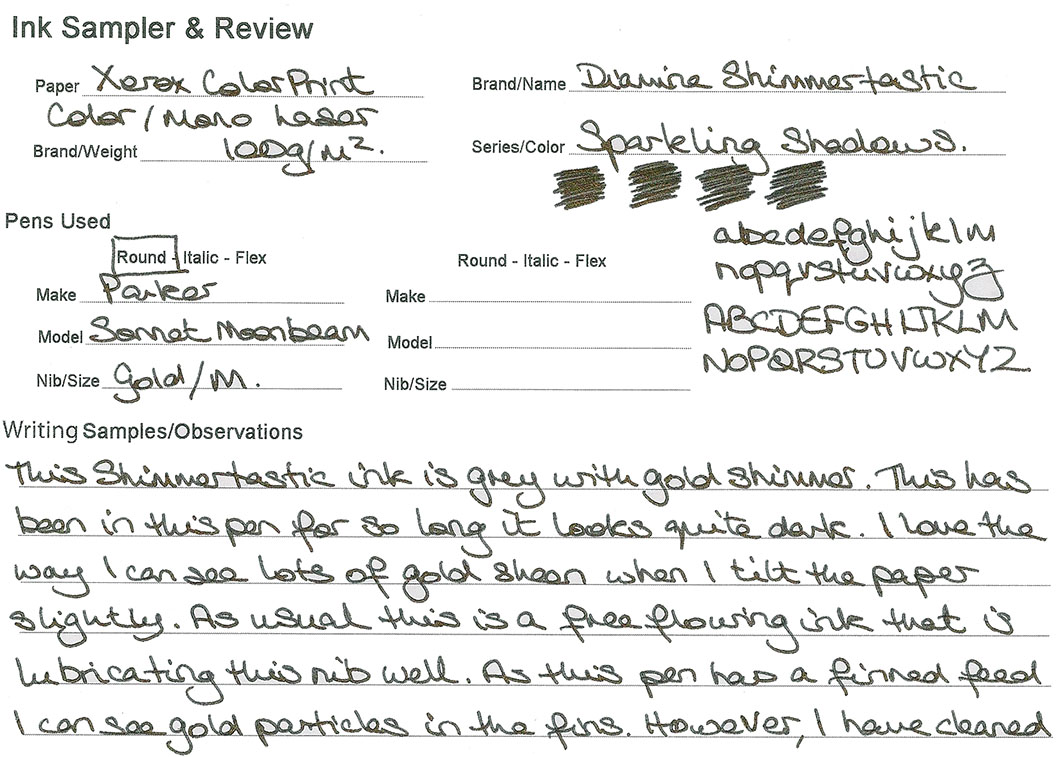 Ink Sampler & Review
Paper Xerox ColorPrint
Color/Mono Laser
Brand/Weight 100g/m².
Brand/Name Diamine Shimmertastic
Series/Color Sparkling Shadows.
Pens Used
Round - Italic - Flex
Make Parker
Model Sonnet Moonbeam
Nib/Size Gold/M.
Round - Italic - Flex
Make
Model
Nib/Size
abcdefghijklm
nopqrstuvwxyz
ABCDEFGHIJKLM
NOPQRSTUVWXYZ
Writing Samples/Observations
This Shimmertastic ink is grey with gold shimmer. This has
been in this pen for so long it looks quite dark. I love the
way I can see lots of gold sheen when I tilt the paper
slightly. As usual this is a free flowing ink that is
lubricating this nib well. As this pen has a finned feed
I can see gold particles in the fins. However, I have cleaned